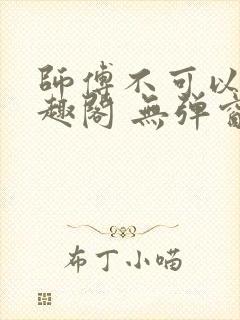 師傅不可以
趣閣 無彈
布丁小喵